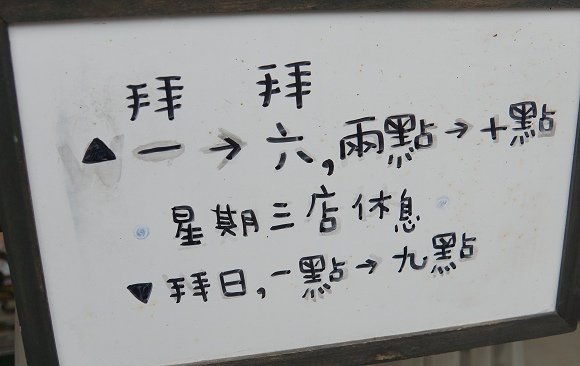 拜 拜
▲ 一 → 六, 兩點 → 十點
星期三店休息
▼ 拜日, 一點 → 九點